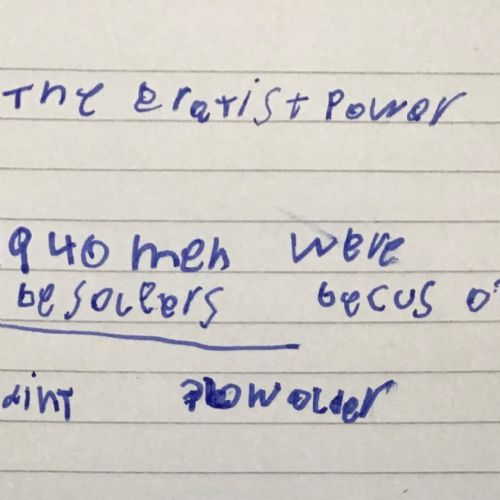 The eratist Power
940 men were
be sollers becus o
dint powder